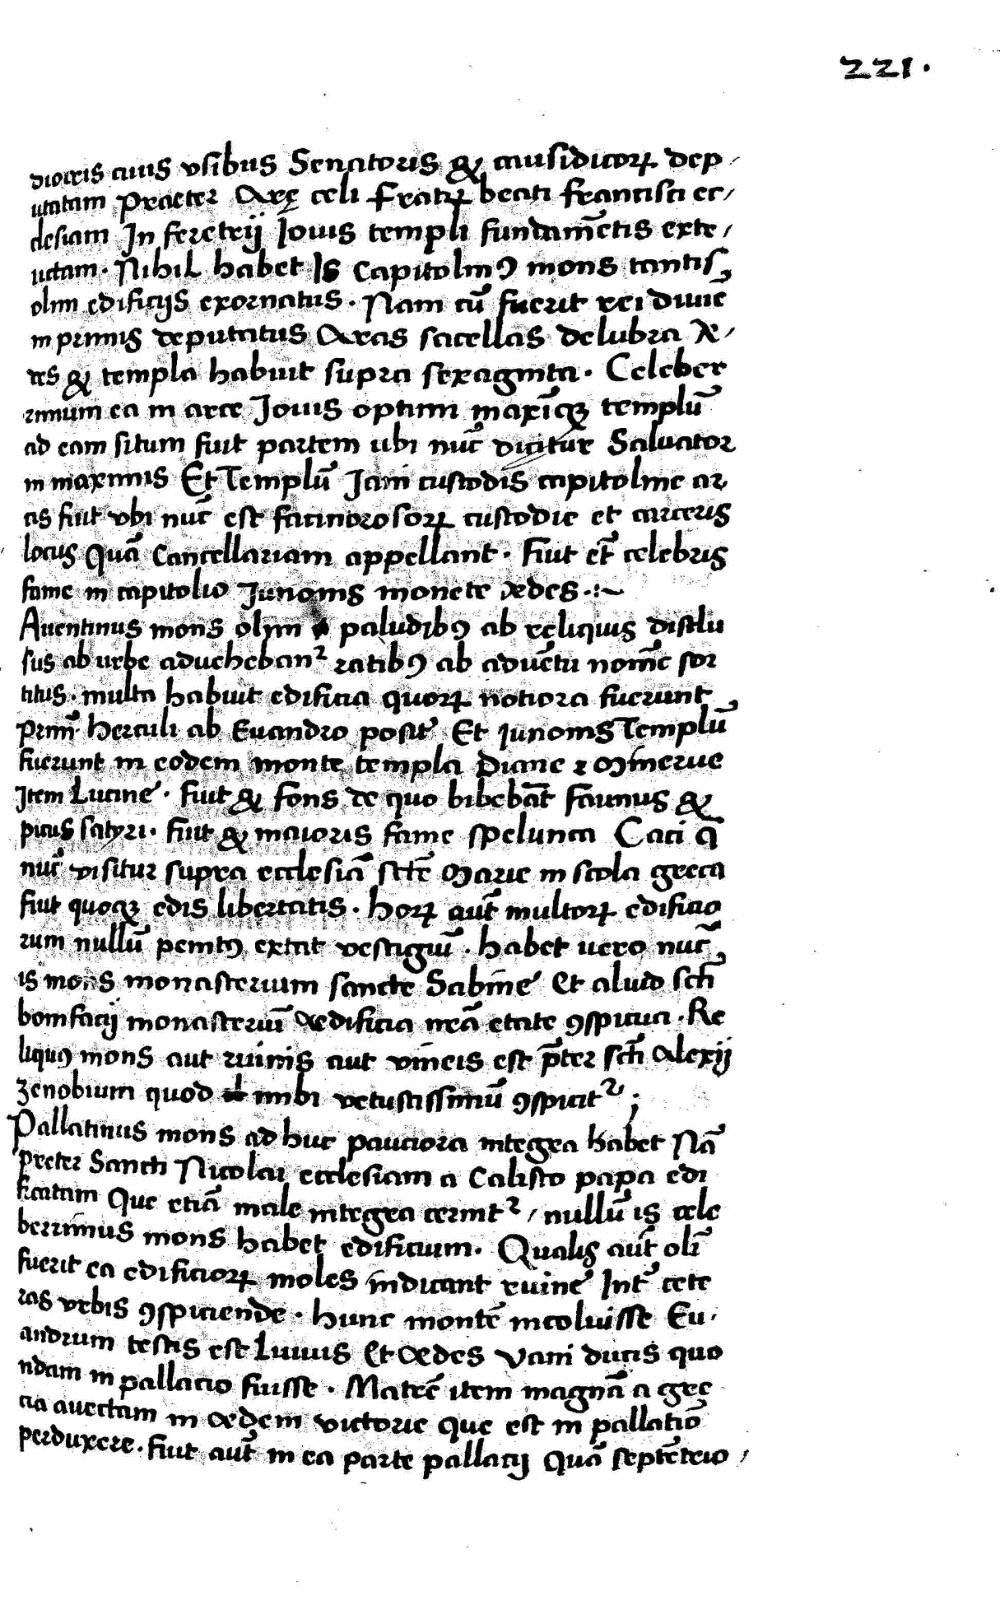 221.
dioceis cuius vsibus Senatoris & causidicoꝝ dep/
utatam Praeter Arę celi Fratꝝ beati francisci ec/
clesiam In feretrij Iouis templi fundamētis exte/
uctam. Nihil habet Is Capitolinꝰ mons tantis
olim edificijs exornatus. Nam cū fuerit rei diuīe
in primis deputatus Aras sacellas delubra Æ/
des & templa habuit supra sexaginta. Celeber
rimum ea in arce Jouis optimi maxīqꝫ templū
ad eam situm fuit partem ubi nūc dicitur Saluator
in maximis Et Templū Jani custodis capitoline ar.
as fuit vbi nūc est facinorosoꝝ custodie et carceris
locus Quā Cancellariam appellant. Fuit et̄ celebris
fame in capitolio Junonis monete ædes .:~
Auentinus mons olim paludibꝰ ab reliquis disclu
sus ab urbe aduehebanᷣ ratibꝰ ab aduētu nomē sor
titus. multa habuit edificia quoꝝ notiora fuerunt
primū. Herculi ab Euandro posit̄ Et Junonis Templū
fuerunt in eodem monte templa Diane ⁊ Minerue
Item Lucine. fuit & fons de quo bibebāt Faunus &
picus satyri. fuit & maioris fame spelunca Caci q̄
nūc visitur supra ecclesiā sctē Marie in scola greca
fuit quoqꝫ edis libertatis. Hoꝝ aūt multoꝝ edificio
rum nullū penitꝰ extat vestigiū. Habet uero nūc
is mons monasterium sancte Sabine Et aliud sctī
bonifacij monasteriū ædificia nr̄a etate ꝯspicua. Re
liquꝰ mons aut ruinis aut vineis est p̄ter sctī Alexij
Zenobium quod inibi vetustissimū ꝯspicitᷣ;
Pallatinus mons ad huc pauciora integra habet Nā
preter Sancti Nicolai ecclesiam a Calisto papa edi
ficatam Que etiā male integra cernitᷣ/ nullū is cele
berrimus mons habet edificium. Qualis aūt oli
fuerit ea edificioꝝ moles indicant ruine Int̄ cete
ras vrbis ꝯspiciende. Hunc montē incoluisse Eu.
andrum testis est Liuius Et Ædes Vani ducis quo
ndam in pallacio fuisse. Matrē item magnā a gre
cia auectam in ædem victorie que est in pallatio
perduxere. fuit aūt in ea parte pallacij Quā septētrio/